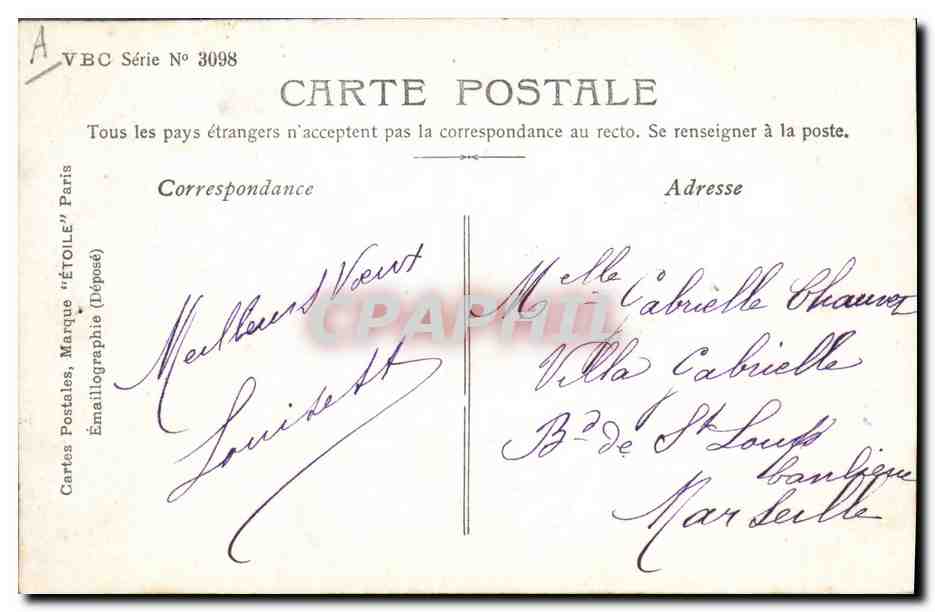 A
VBC Série Nº 3098
CARTE POSTALE
Tous les pays étrangers n'acceptent pas la correspondance au recto. Se renseigner à la poste.
Correspondance
Adresse
Cartes Postales, Marque "ÉTOILE" Paris
Émaillographie (Déposé)
Meilleurs Vœux
Louisette
Melle Gabrielle Chauvet
Villa Gabrielle
Bd de St Loup
banlieue
Marseille
CPAPHIL